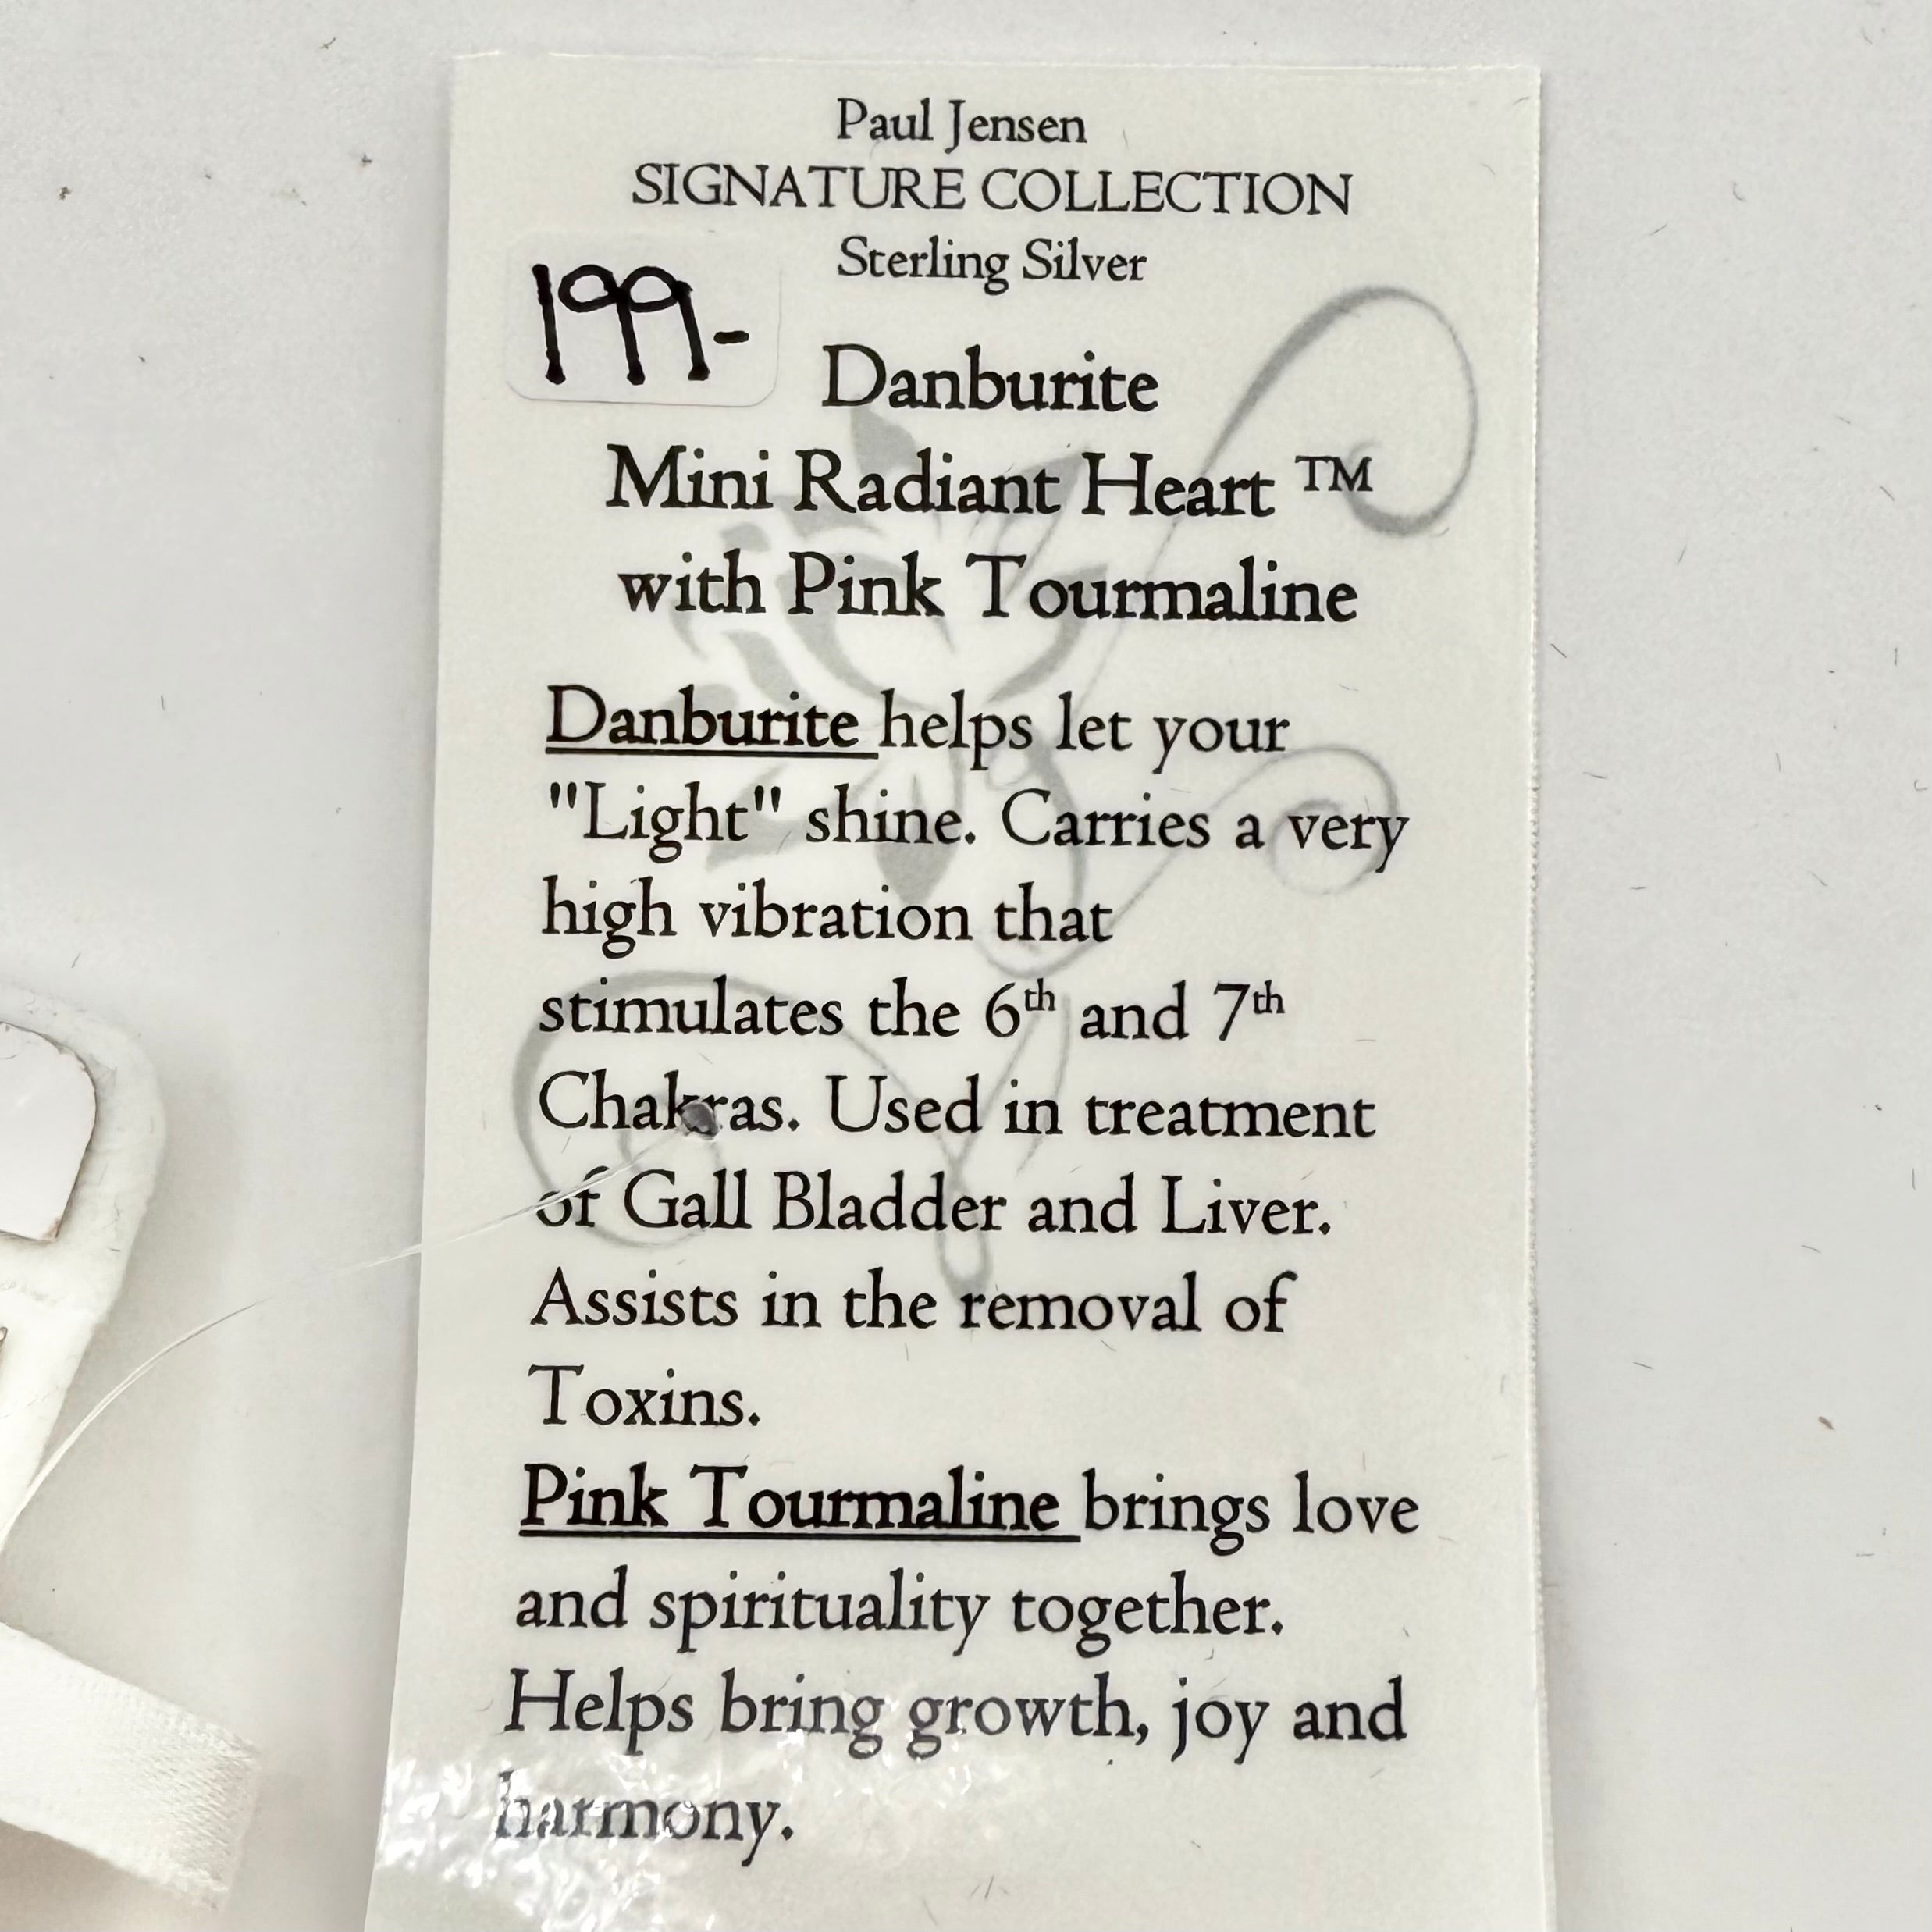 Paul Jensen
SIGNATURE COLLECTION
Sterling Silver
199-
Danburite
Mini Radiant Heart ™
with Pink Tourmaline
Danburite helps let your
"Light" shine. Carries a very
high vibration that
stimulates the 6th and 7th
Chakras. Used in treatment
of Gall Bladder and Liver.
Assists in the removal of
Toxins.
Pink Tourmaline brings love
and spirituality together.
Helps bring growth, joy and
harmony.